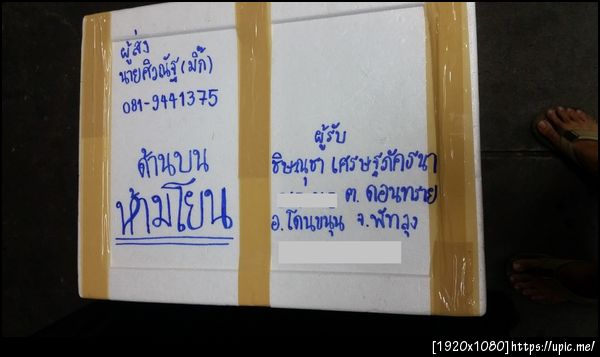 ผู้ส่ง
นายศิวณัฐ (มิ๊ก)
081-9441375
ด้านบน
ห้ามโยน
ผู้รับ
ชิษณุชา เศรษฐภัคธนา
ต. ดอนทราย
อ. โตนขนุน จ. พัทลุง
[1920x1080]https://upic.me/